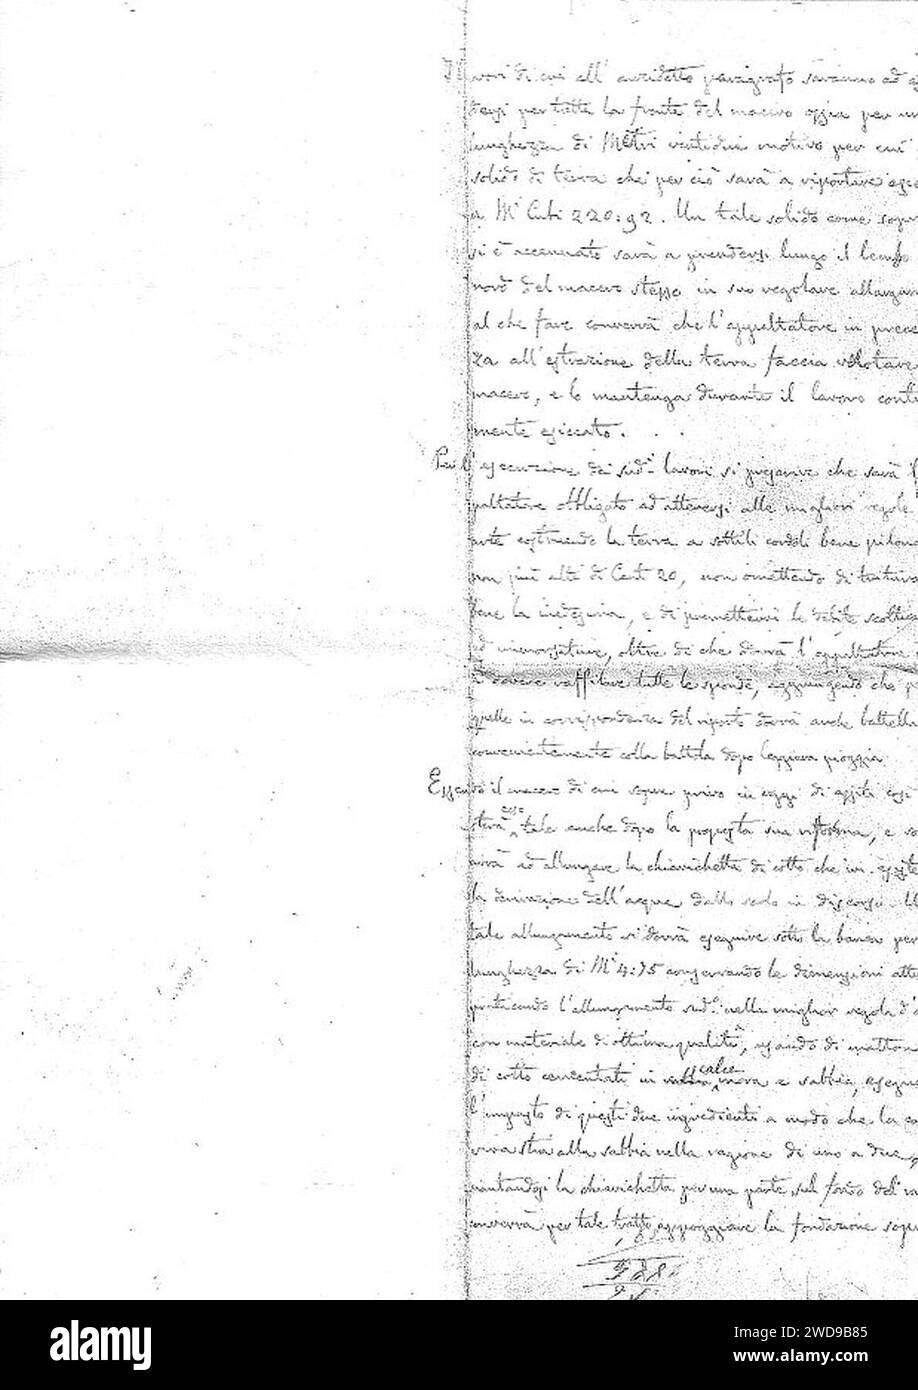 I lavori di cui all' anzidetto paragrafo saranno ad
dersi per tutta la fronte del macero ossia per un
lunghezza di Metri ventidue motivo per cui
solido di terra che per ciò sarà a riportare
a Mⁱ Cubi 220:92. Un tale solido come sopr
si è accennato sarà a prendersi lungo il lembo
nord del macero stesso in suo regolare allarga
al che fare converrà che l'appaltatore in prece
za all'estrazione della terra faccia vuotare
macero, e lo mantenga durante il lavoro conti
mente essiccato.
Per l'esecuzione dei sudⁱ lavori si prescrive che sarà
paltatore obbligato ad attenersi alle migliori regole
arte costruendo la terra a sottili cordoli bene pilona
non più alti di Cent 20, non omettendo di tritura
bene la medesima, e di premettervi le debite
ed immorsature, oltre di che dovrà l'appaltatore
a dovere raffilare tutte le sponde, aggiungendo che
quelle in corrispondenza del riporto dovrà anche battelle
convenientemente colla battola dopo leggiera pioggia
Essendo il macero di cui sopra privo in oggi di
sterà tale anche dopo la proposta sua riforma, e
ad allungare la chiavichetta di cotto che ivi esiste
la derivazione dell'acque dallo scolo in discorso. Il
tale allungamento si dovrà eseguire sotto la banca per
lunghezza di Mⁱ 4:75 conservando le dimensioni
praticando l'allungamento sudº nella miglior regola d'
con materiale di ottima qualità, usando di matton
di cotto cementati in calce nova e sabbia,
l'impasto di questi due ingredienti a modo che la ca
viva stia alla sabbia nella ragione di uno a due,
piantandosi la chiavichetta per una parte sul fondo del
converrà per tale tratto appoggiare la fondazione sopr
alamy
Image ID: 2WD9B85
www.alamy.com